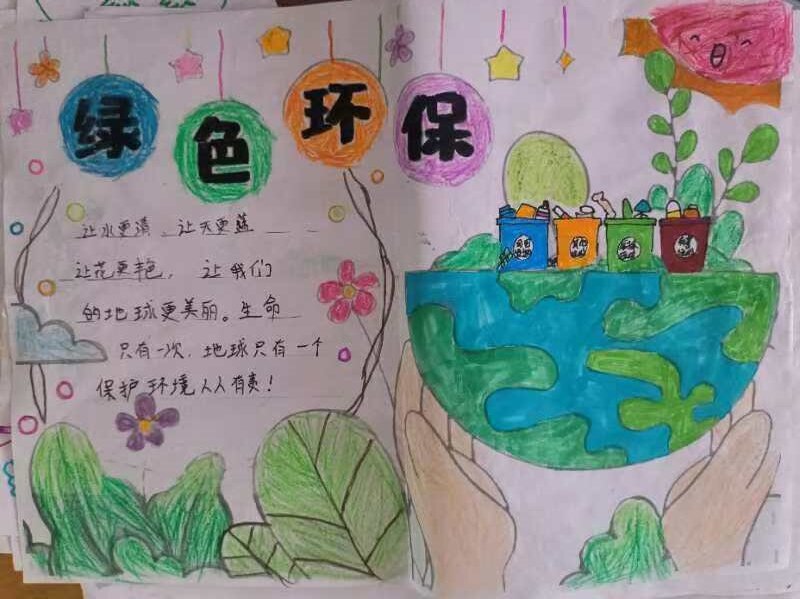 绿色环保
让水更清、让天更蓝
让花更艳，让我们
的地球更美丽。生命
只有一次，地球只有一个
保护环境人人有责！